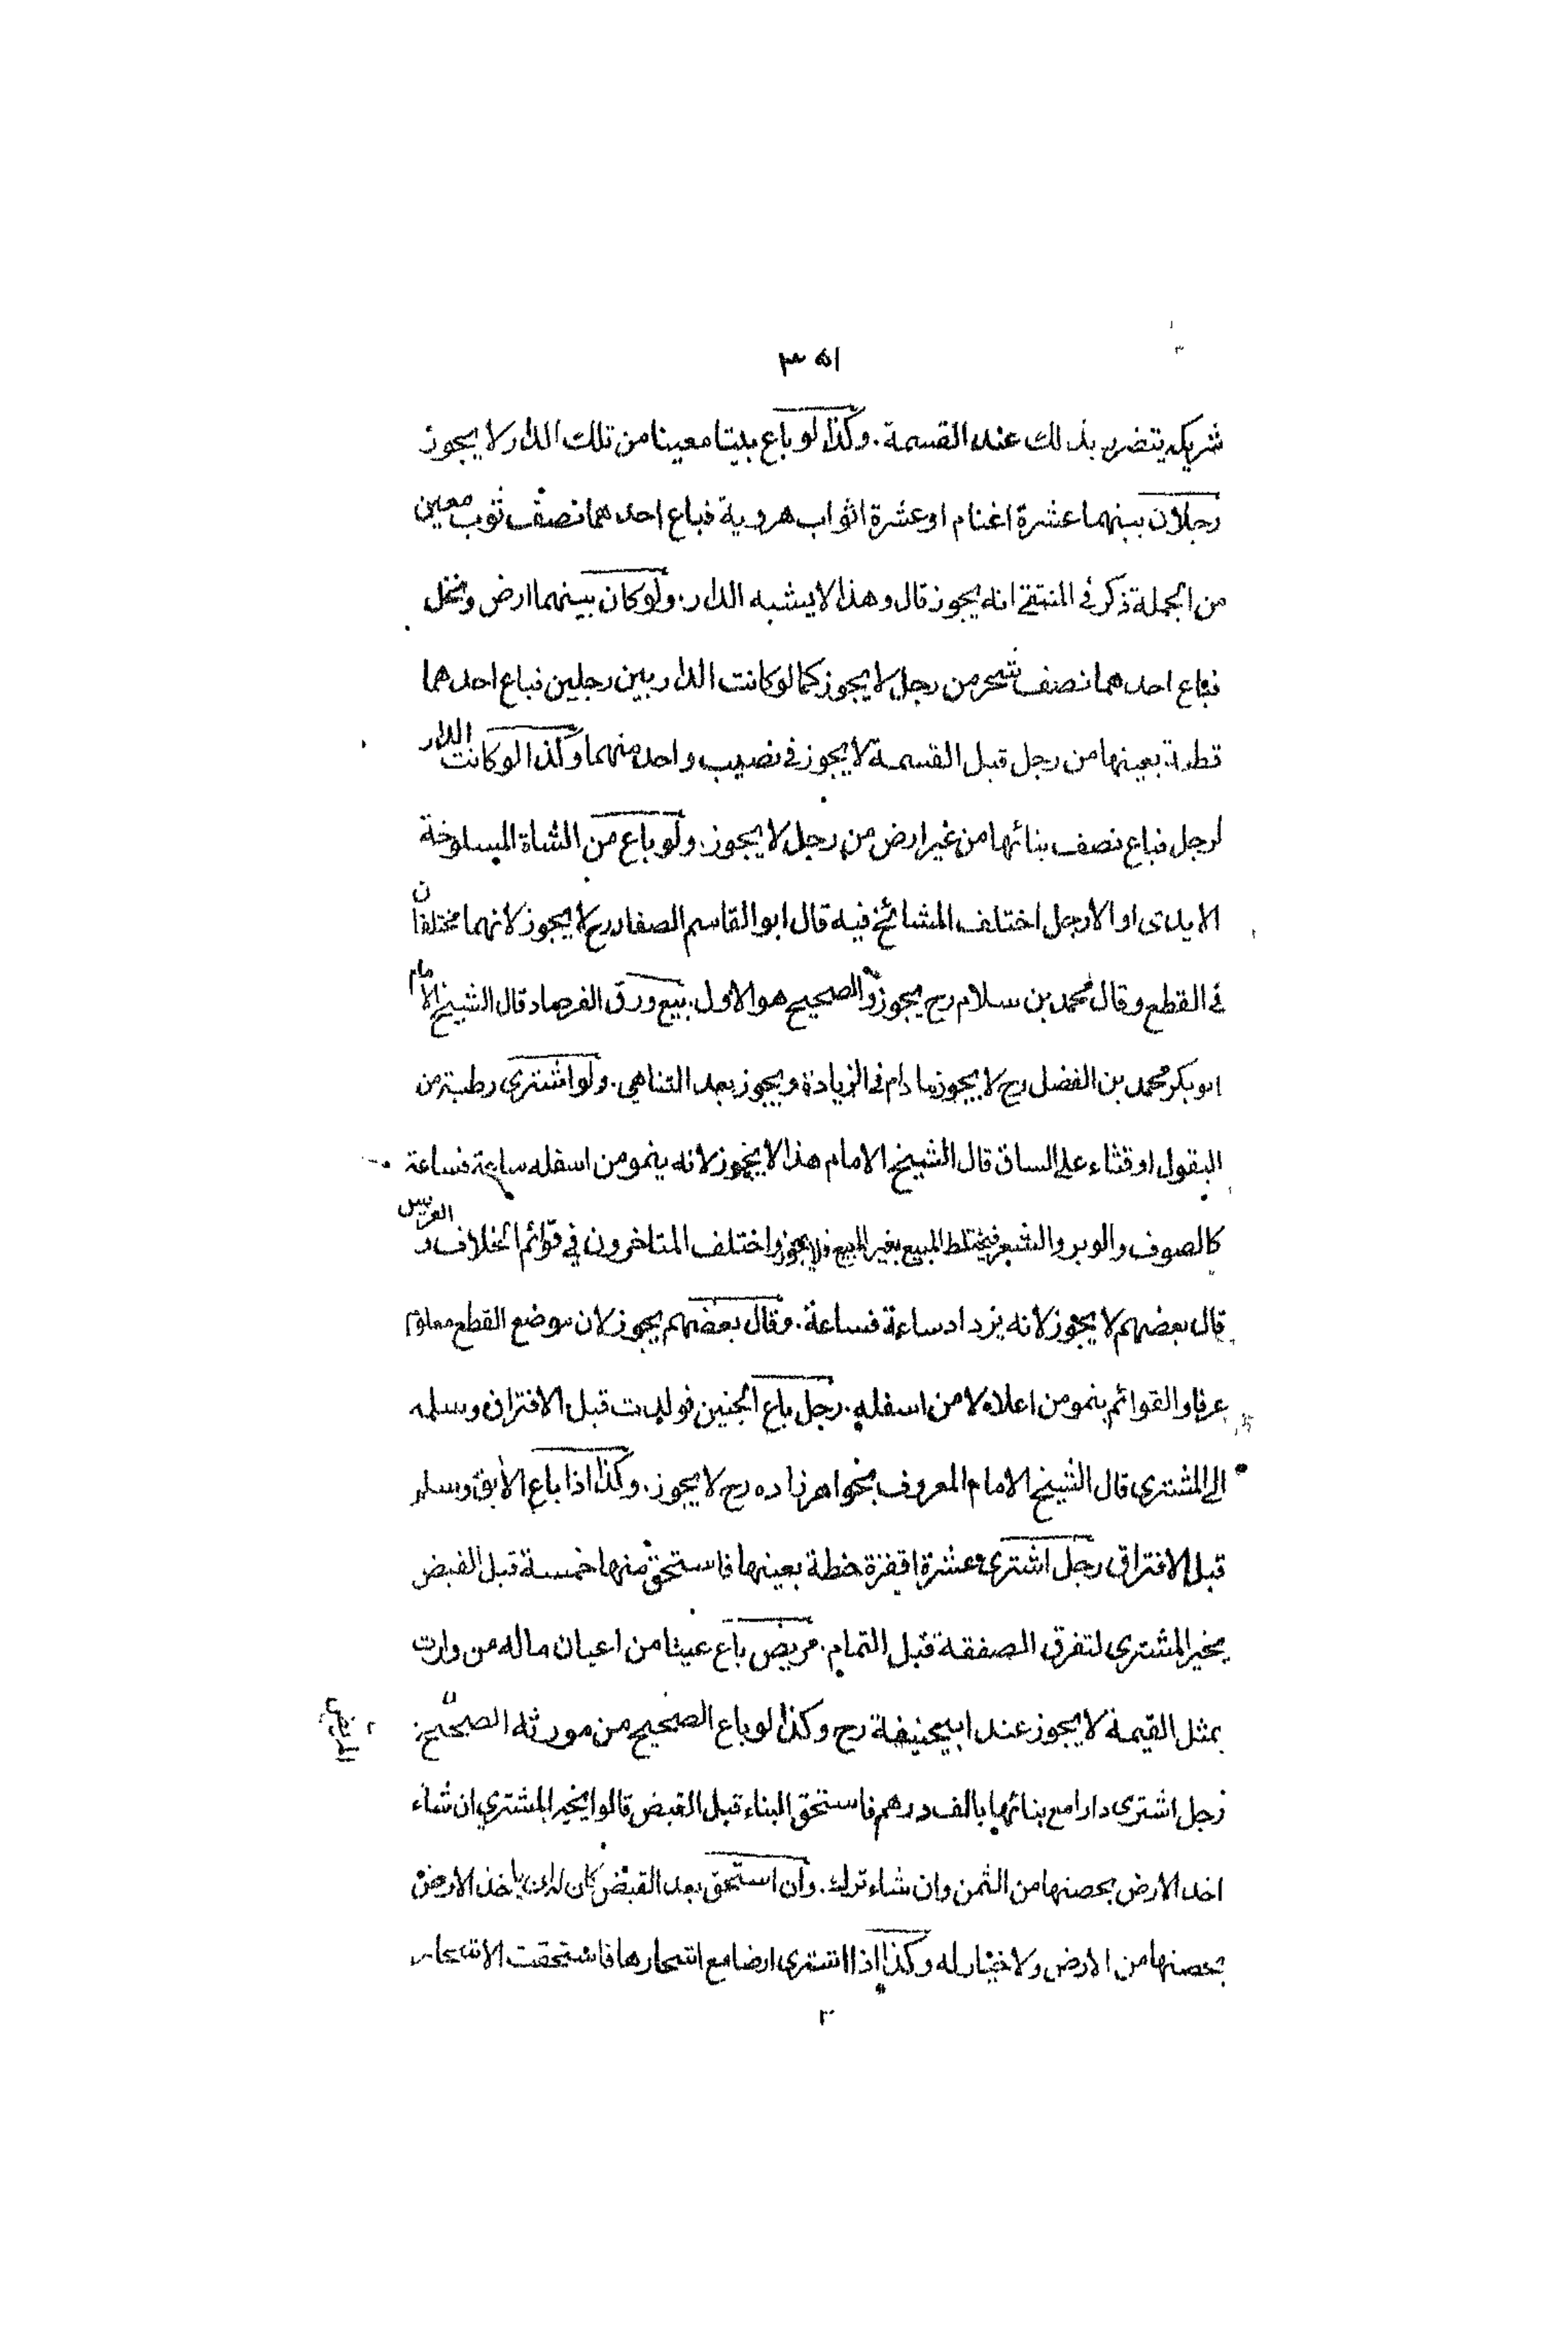 ٣٥١
شريكه يتضرر بذلك عند القسمة. وكذا لو باع بيتا معينا من تلك الدار لا يجوز
رجلان بينهما عشرة اغنام او عشرة اثواب هروية فباع احدهما نصف ثوب معين
من الجملة ذكر في المنتقى انه يجوز قال وهذا لا يشبه الدار. ولو كان بينهما ارض ونخل
فباع احدهما نصف شجر من رجل لا يجوز كما لو كانت الدار بين رجلين فباع احدهما
قطعة بعينها من رجل قبل القسمة لا يجوز في نصيب واحد منهما وكذا لو كانت الدار
لرجل فباع نصف بنائها من غير ارض من رجل لا يجوز. ولو باع من الشاة المسلوخة
الايدى او الارجل اختلف المشائخ فيه قال ابو القاسم الصفار رح لا يجوز لانهما مختلفان
في القطع وقال محمد بن سلام رح يجوز والصحيح هو الاول. بيع ورق الفرصاد قال الشيخ الامام
ابو بكر محمد بن الفضل رح لا يجوز ما دام في الزيادة ويجوز بعد التناهي. ولو اشترى رطبة من
البقول او قثاء على الساق قال الشيخ الامام هذا لا يجوز لانه ينمو من اسفله ساعة فساعة
كالصوف والوبر والشعر فيختلط المبيع بغير المبيع فلا يجوز واختلف المتاخرون في قوائم الخلاف و
قال بعضهم لا يجوز لانه يزداد ساعة فساعة. وقال بعضهم يجوز لان موضع القطع معلوم
عرفا والقوائم ينمو من اعلاه لا من اسفله. رجل باع الجنين فولدت قبل الافتراق وسلمه
الى المشترى قال الشيخ الامام المعروف بخواهرزاده رح لا يجوز. وكذا اذا باع الآبق وسلم
قبل الافتراق رجل اشترى عشرة اقفزة حنطة بعينها فاستحق منها خمسة قبل القبض
يخير المشترى لتفرق الصفقة قبل التمام. مريض باع عينا من اعيان ماله من وارث
بمثل القيمة لا يجوز عند ابيحنيفة رح وكذا لو باع الصحيح من مورثه الصحيح
المريض
رجل اشترى دارا مع بنائها بالف درهم فاستحق البناء قبل القبض قالوا يخير المشتري ان شاء
اخذ الارض بحصتها من الثمن وان شاء ترك. وان استحق بعد القبض كان له ان ياخذ الارض
بحصتها من الارض ولا خيار له وكذا اذا اشترى ارضا مع اشجارها فاستحقت الاشجار